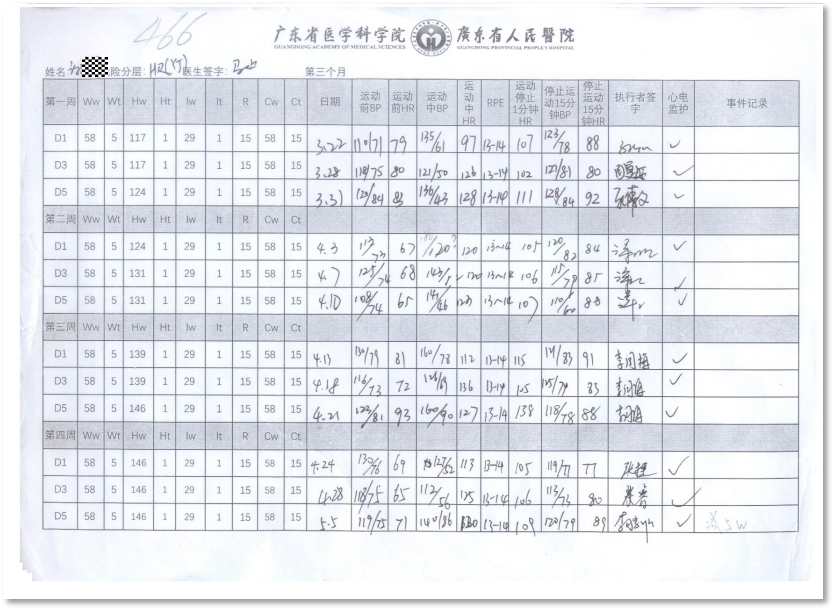 466
广东省医学科学院 广东省人民醫院
GUANGDONG ACADEMY OF MEDICAL SCIENCES GUANGDONG PROVINCIAL PEOPLE'S HOSPITAL
姓名: 险分层: 医生签字: 第三个月
第一周 Ww Wt Hw Ht Iw It R Cw Ct 日期 运动前BP 运动前HR 运动中BP 运动中HR RPE 运动停止1分钟HR 停止运动15分钟BP 停止运动15分钟HR 执行者签字 心电监护 事件记录
D1 58 5 117 1 29 1 15 58 15 3.22 110/71 79 135/61 97 13-14 107 123/78 88 ✓
D3 58 5 117 1 29 1 15 58 15 3.28 118/75 80 121/50 126 13-14 102 121/81 80 ✓
D5 58 5 124 1 29 1 15 58 15 3.31 120/84 83 136/43 128 13-14 111 128/84 92 ✓
第二周 Ww Wt Hw Ht Iw It R Cw Ct
D1 58 5 124 1 29 1 15 58 15 4.3 67 120 13-14 105 120/82 84 ✓
D3 58 5 131 1 29 1 15 58 15 4.7 125/74 68 120 13-14 106 115/78 85 ✓
D5 58 5 131 1 29 1 15 58 15 4.10 108/74 65 13-14 107 88 ✓
第三周 Ww Wt Hw Ht Iw It R Cw Ct
D1 58 5 139 1 29 1 15 58 15 4.13 130/79 81 160/78 112 13-14 115 83 91 ✓
D3 58 5 139 1 29 1 15 58 15 4.18 116/73 72 136 13-14 105 83 ✓
D5 58 5 146 1 29 1 15 58 15 4.21 123/81 93 160/90 127 13-14 138 118/78 88 ✓
第四周 Ww Wt Hw Ht Iw It R Cw Ct
D1 58 5 146 1 29 1 15 58 15 4.24 130/76 69 127/52 113 13-14 105 119/71 77 ✓
D3 58 5 146 1 29 1 15 58 15 4.28 118/75 65 112/56 13-14 106 113/73 80 ✓
D5 58 5 146 1 29 1 15 58 15 5.5 119/75 71 140/86 13-14 109 120/79 89 ✓ 5W